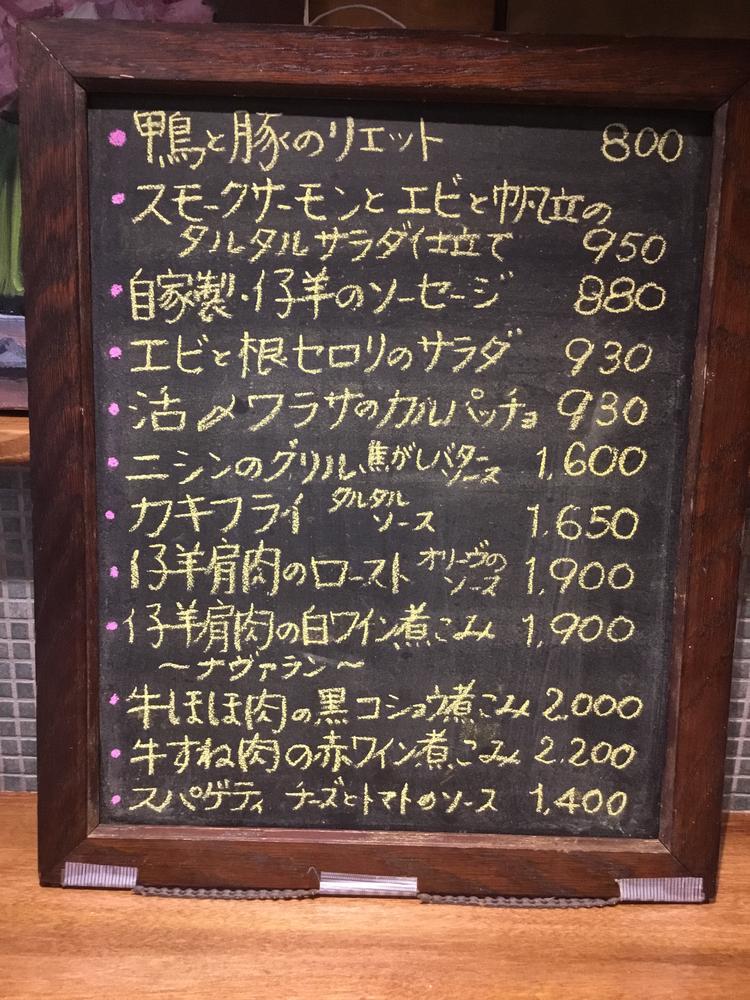 鴨と豚のリエット 800
スモークサーモンとエビと帆立の
タルタルサラダ仕立て 950
自家製・仔羊のソーセージ 880
エビと根セロリのサラダ 930
活〆ワラサのカルパッチョ 930
ニシンのグリル、焦がしバターソース 1,600
カキフライ タルタルソース 1,650
仔羊肩肉のロースト オリーヴのソース 1,900
仔羊肩肉の白ワイン煮こみ 1,900
〜ナヴァラン〜
牛ほほ肉の黒コショウ煮こみ 2.000
牛すね肉の赤ワイン煮こみ 2.200
スパゲティ チーズとトマトのソース 1,400